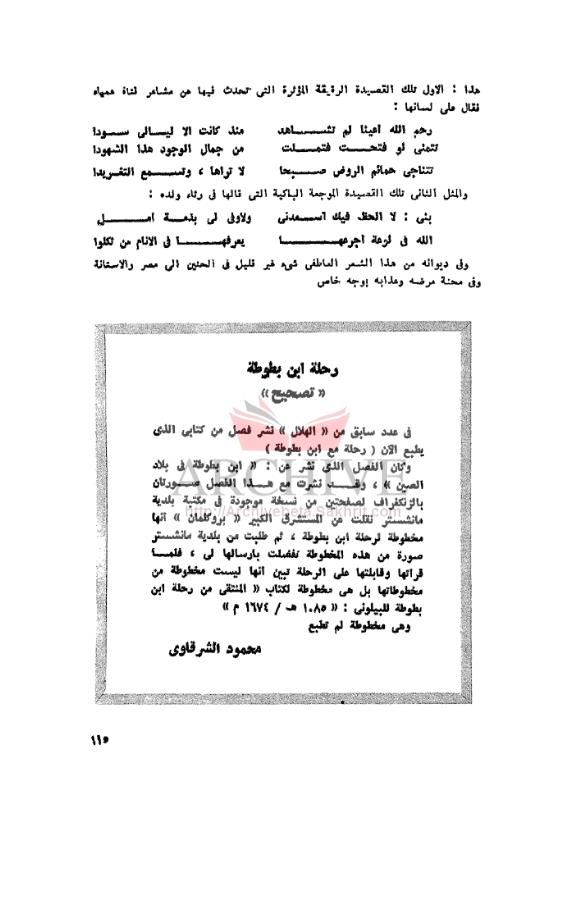 هذا : الاول تلك القصيدة الرقيقة المؤثرة التى تحدث فيها عن مشاعر فتاة عمياء
فقال على لسانها :
رحم الله أعينا لم تشــاهد منذ كانت الا ليــالى ســودا
تتمنى لو فتحــت فتملــت من جمال الوجود هذا الشهودا
تتناجى حمائم الروض صــبحا لا تراها ، وتســمع التغريدا
والمثل الثانى تلك القصيدة الموجعة الباكية التى قالها فى رثاء ولده :
بنى : لا الحظ فيك أسـعدنى ولاوفى لى بذمــة أمــل
الله فى لوعة أجرعهــا يعرفهــا فى الانام من ثكلوا
وفى ديوانه من هذا الشعر العاطفى شىء غير قليل فى الحنين الى مصر والاستانة
وفى محنة مرضه وعذابه بوجه خاص
رحلة ابن بطوطة
« تصحيح »
فى عدد سابق من « الهلال » نشر فصل من كتابى الذى
يطبع الآن ( رحلة مع ابن بطوطة )
وكان الفصل الذى نشر عن : « ابن بطوطة فى بلاد
الصين » ، وقــد نشرت مع هــذا الفصل صــورتان
بالزنكغراف لصفحتين من نسخة موجودة فى مكتبة بلدية
مانشستر نقلت عن المستشرق الكبير « بروكلمان » أنها
مخطوطة لرحلة ابن بطوطة ، ثم طلبت من بلدية مانشستر
صورة من هذه المخطوطة تفضلت بارسالها لى ، فلمــا
قرأتها وقابلتها على الرحلة تبين أنها ليست مخطوطة من
مخطوطاتها بل هى مخطوطة لكتاب « المنتقى من رحلة ابن
بطوطة للبيلونى : « ١٠٨٥ هـ / ١٦٧٤ م »
وهى مخطوطة لم تطبع
محمود الشرقاوى
ARCHIVE
http://Archivebeta.Sakhrit.com
١١٥